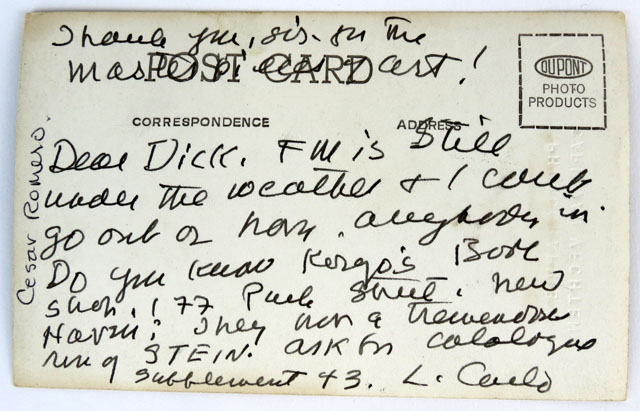 Thank you, sir. for the
Masterpiece of art!
POST CARD
DUPONT
PHOTO
PRODUCTS
CORRESPONDENCE
ADDRESS
Cesar Romero.
Dear Dick. FM is Still
under the weather & I can't
go out or have anybody in.
Do you know Book
Shop. 177 Park Street. New
Haven? They have a tremendous
run of STEIN. ask for catalogue
supplement #3. L.